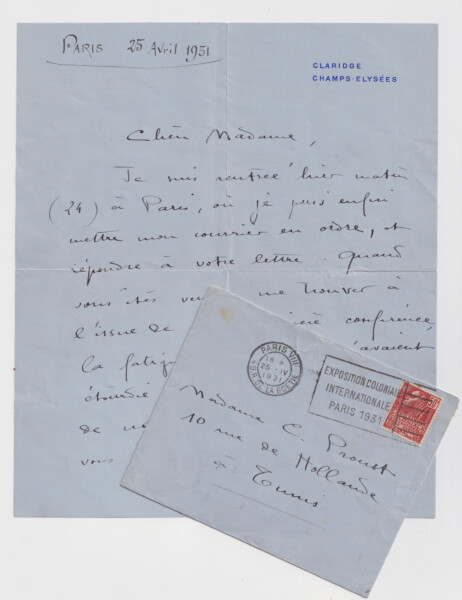 PARIS 25 Avril 1931
CLARIDGE
CHAMPS-ELYSÉES
Chère Madame,
Je suis rentrée hier matin
(24) à Paris, où je puis enfin
mettre mon courrier en ordre, et
répondre à votre lettre. Quand
vous êtes me trouver à
l'issue de conférence,
la avaient
étourdie
de
vous
PARIS VIII
18
25 - IV
1931
R. DE LA BOETIE
EXPOSITION COLONIALE
INTERNATIONALE
PARIS 1931
Madame C. Proust
10 rue de Hollande
à
Tunis